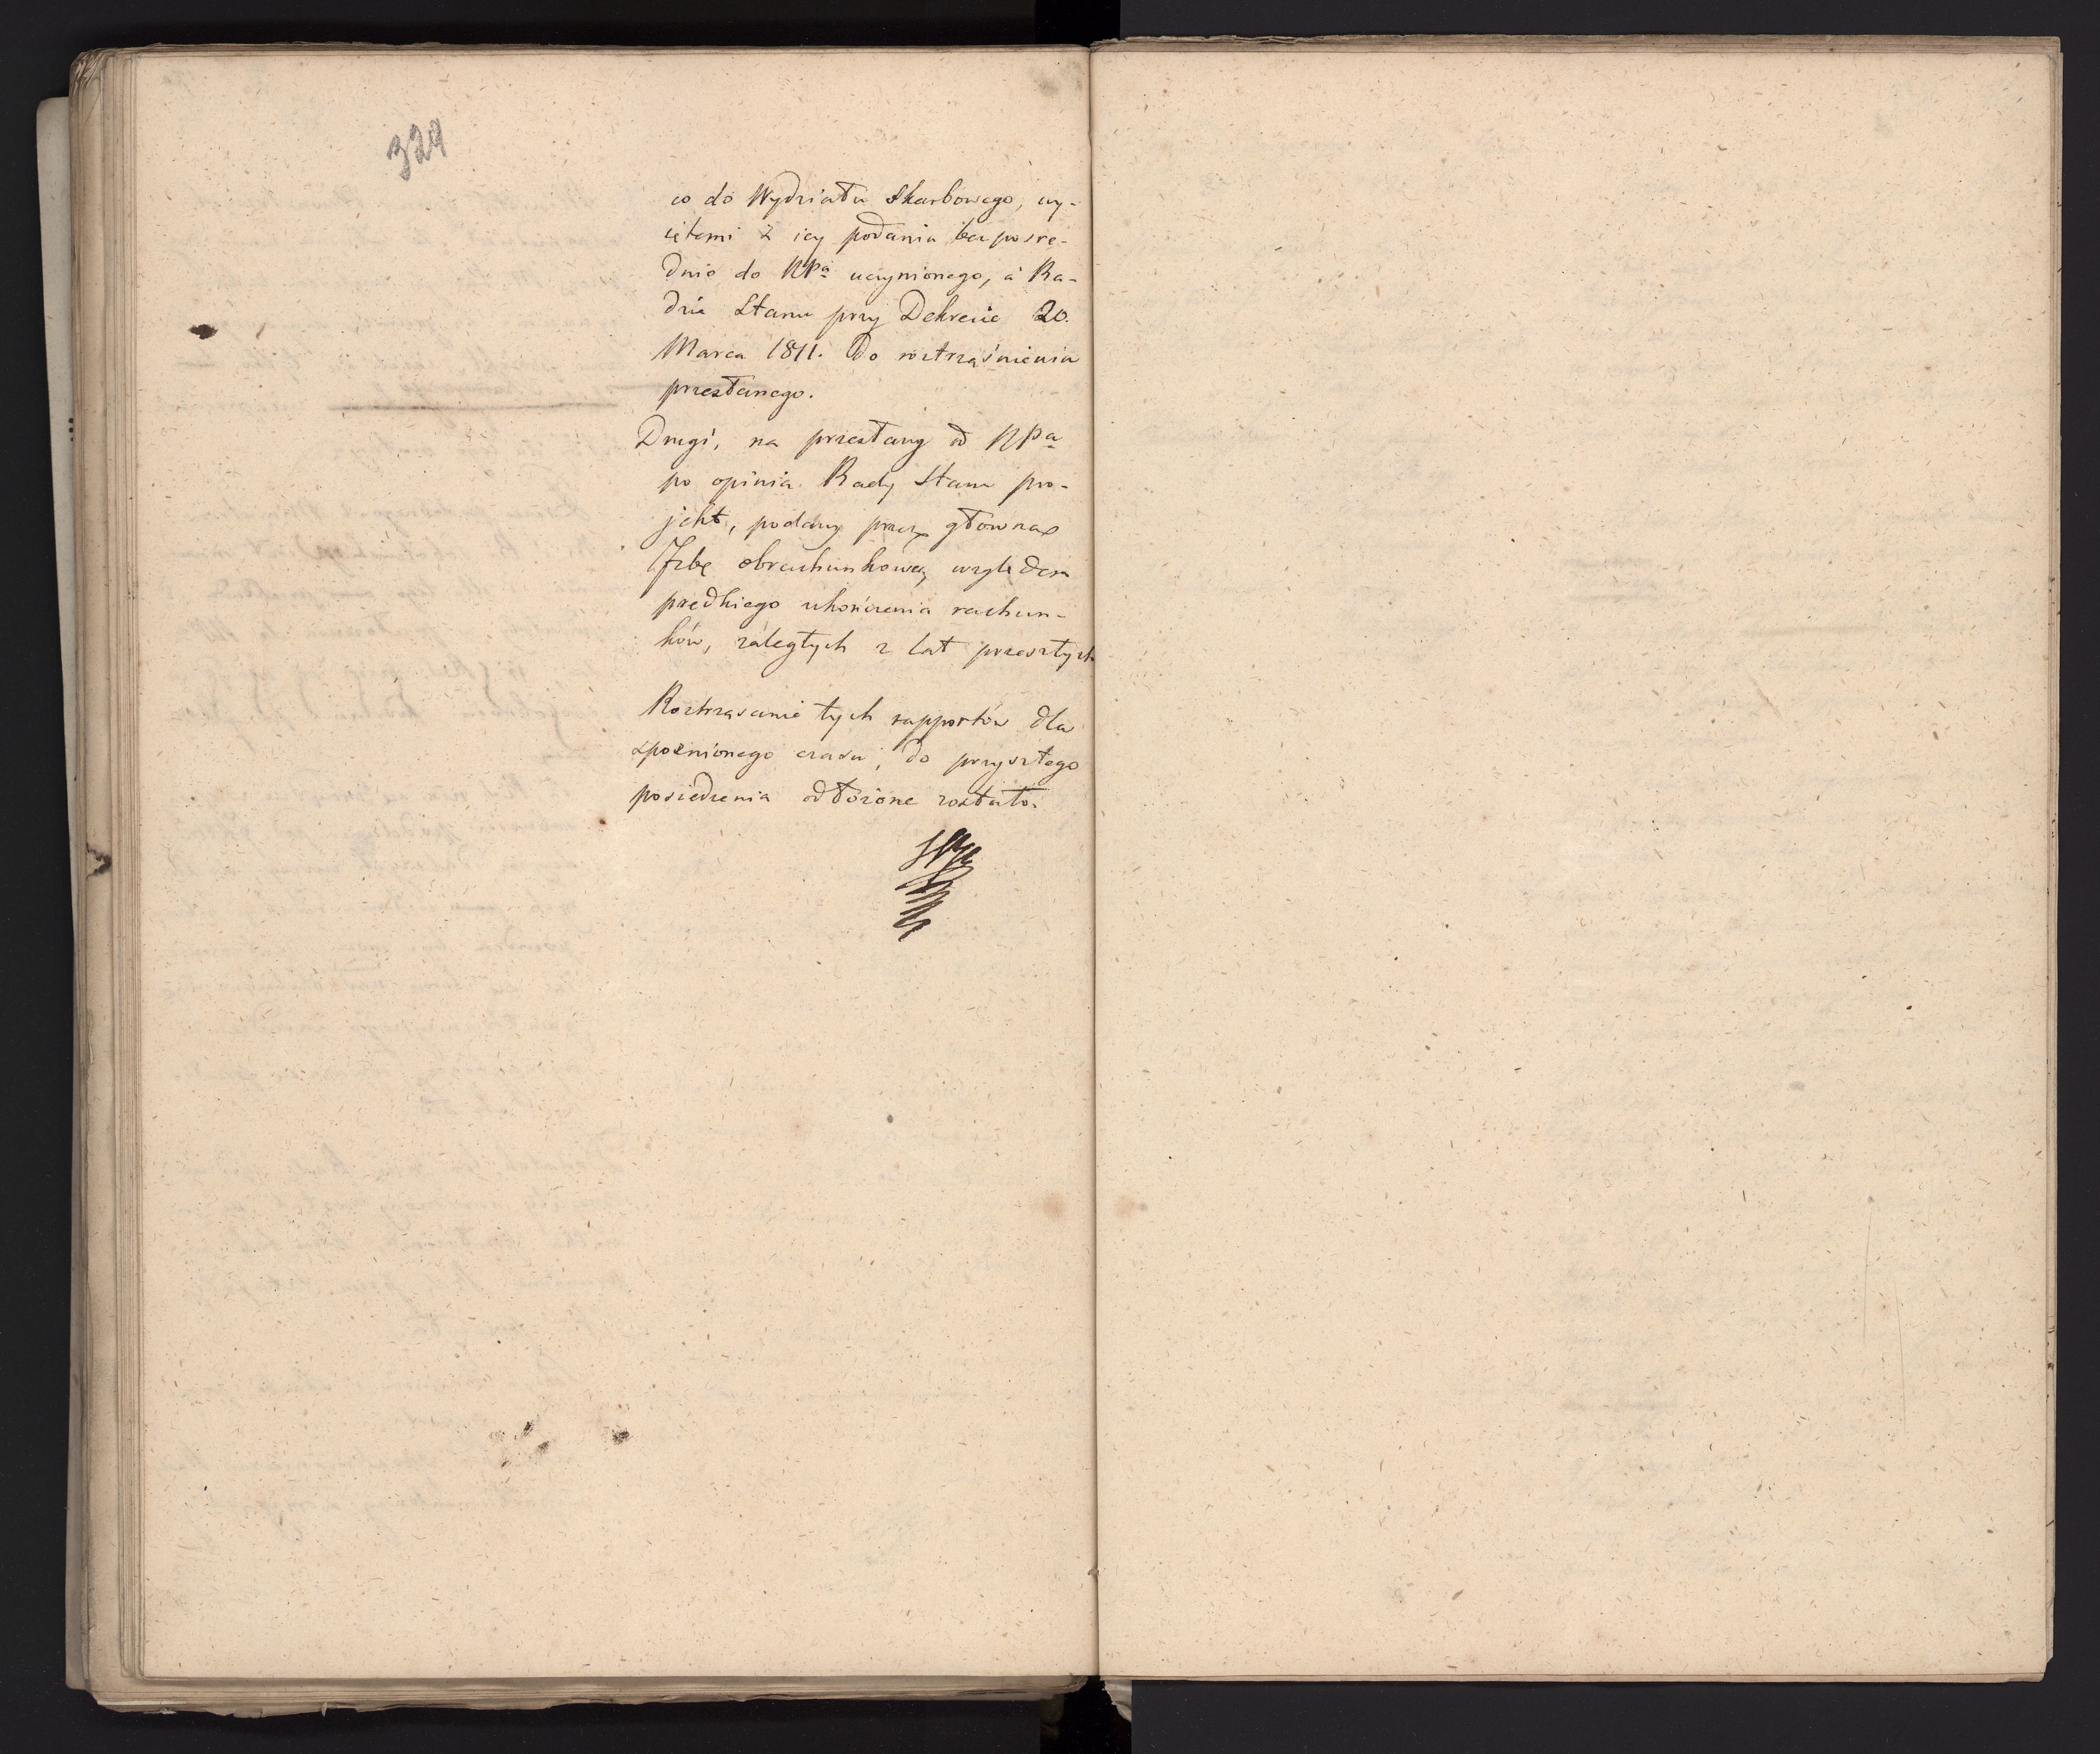 329
co do Wydziału Skarbowego, wy-
iętemi z iey podania bezpośre-
dnio do NPa uczynionego, a Ra-
dzie Stanu przy Dekrecie 20.
Marca 1811. do roztrząśnienia
przesłanego.
Drugi, na przesłany od NPa
po opinią Rady Stanu pro-
jekt, podany przez główną
Izbę obrachunkową względem
prędkiego ukończenia rachun-
ków, zaległych z lat przeszłych
Roztrząsanie tych rapportów dla
zpoźnionego czasu, do przyszłego
posiedzenia odłożone zostało.